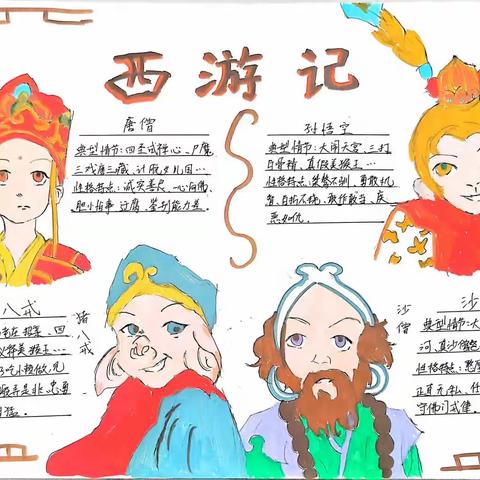 西游记
唐僧
典型情节:四圣试禅心、尸魔
三戏唐三藏、计脱女儿国…
性格特点:诚实善良、一心向佛、
胆小怕事、迂腐、鉴别能力差。
孙悟空
典型情节:大闹天宫、三打
白骨精、真假美猴王…
性格特点:桀骜不驯、勇敢机
智、百折不挠、敢作敢当、疾
恶如仇。
八戒
义释美猴王…
好吃小懒做、见
搬弄是非、忠勇
猪八戒
沙僧
沙
典型情节:大
河、真沙僧
性格特点:憨厚
正直无私、任
守佛门戒律。